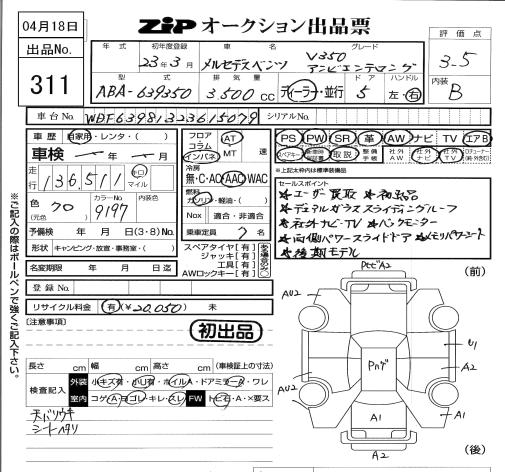 04月18日
ZiP オークション出品票
出品No.
311
年式
初年度登録
車名
グレード
23年3月
メルセデスベンツ
V350
アンビエンテロング
評価点
3-5
型式
排気量
ドア
ハンドル
ABA-639350
3500cc
ディーラー・並行
5
左・右
内装
B
車台No.
WDF63981323615079
シリアルNo.
車歴
自家用・レンタ・( )
車検
年 月
走行
136,511
キロ
マイル
色
カラーNo.
内装色
クロ
(70)
9197
予備検
年 月 日(3・8)No.
形状
キャンピング・放書・事務室・( )
名変期限 年 月 日迄
登録No.
リサイクル料金
有(¥20,050) 未
フロア
コラム
インパネ
AT
MT
速
冷房
無・C・AC・AAC・WAC
燃料
ガソリン・軽油・( )
Nox
適合・非適合
乗車定員
7
名
スペアタイヤ[有]
ジャッキ[有]
工具[有]
AWロックキー[有]
PS
PW
SR
革
AW
ナビ
TV
エアB
スペアキー
取説
整備手帳
社外AW
社外ナビ
社外TV
※上記太枠内は標準装備品
セールスポイント
★ユーザー買取 ★初出品
★デュアルガラススライディングルーフ
★社外ナビ・TV ★バックモニター
★両側パワースライドドア ★メモリパワーシート
★後期モデル
[注意事項]
初出品
長さ cm 幅 cm 高さ cm (車検証上の寸法)
検査記入
外装
小キズ有・小凹有・ホイルA・ドアミラーB・ワレ
室内
コゲA・ヨゴレ・キレ・スレ
FW
トビ石・A・×要ス
天バリウキ
シートヘタリ
※ご記入の際はボールペンで強くご記入下さい。
(前)
PビA2
AU2
U1
A2
Pカグ
AU2
A1
A1
A2
(後)